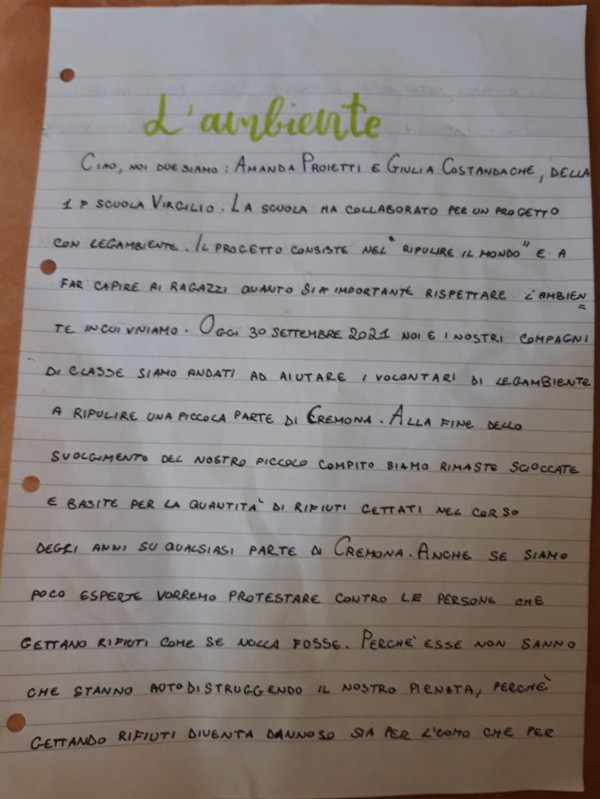 L'ambiente
CIAO, NOI DUE SIAMO: AMANDA PROIETTI E GIULIA COSTANDACHE, DELLA
1 P SCUOLA VIRGILIO. LA SCUOLA HA COLLABORATO PER UN PROGETTO
CON LEGAMBIENTE. IL PROGETTO CONSISTE NEL "RIPULIRE IL MONDO" E A
FAR CAPIRE AI RAGAZZI QUANTO SIA IMPORTANTE RISPETTARE L'AMBIEN=
TE IN CUI VIVIAMO. OGGI 30 SETTEMBRE 2021 NOI E I NOSTRI COMPAGNI
DI CLASSE SIAMO ANDATI AD AIUTARE I VOLONTARI DI LEGAMBIENTE
A RIPULIRE UNA PICCOLA PARTE DI CREMONA. ALLA FINE DELLO
SVOLGIMENTO DEL NOSTRO PICCOLO COMPITO SIAMO RIMASTE SCIOCCATE
E BASITE PER LA QUANTITA' DI RIFIUTI GETTATI NEL CORSO
DEGLI ANNI SU QUALSIASI PARTE DI CREMONA. ANCHE SE SIAMO
POCO ESPERTE VORREMO PROTESTARE CONTRO LE PERSONE CHE
GETTANO RIFIUTI COME SE NULLA FOSSE. PERCHÈ ESSE NON SANNO
CHE STANNO AUTODISTRUGGENDO IL NOSTRO PIENATA, PERCHÈ
GETTANDO RIFIUTI DIVENTA DANNOSO SIA PER L'UOMO CHE PER